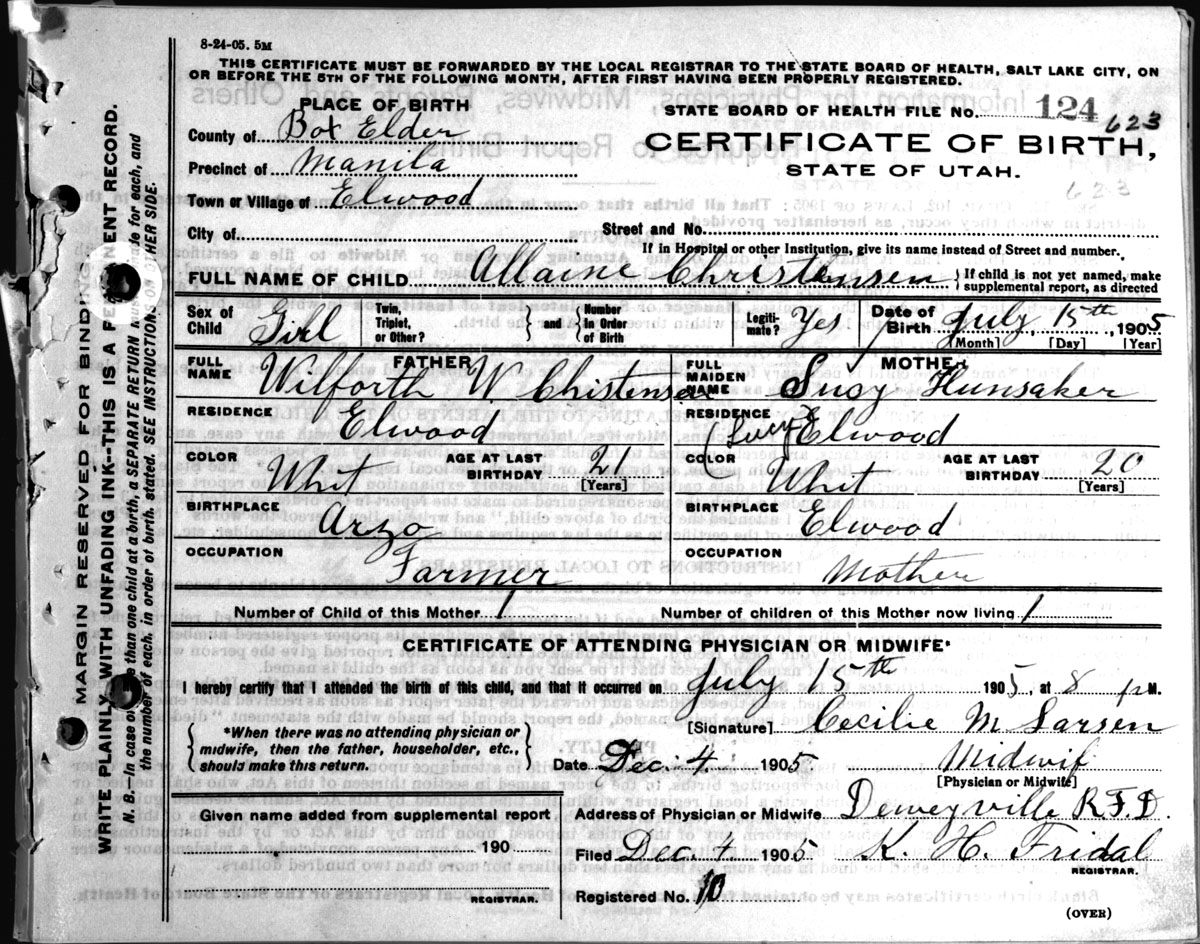 8-24-05. 5M
THIS CERTIFICATE MUST BE FORWARDED BY THE LOCAL REGISTRAR TO THE STATE BOARD OF HEALTH, SALT LAKE CITY, ON
OR BEFORE THE 5TH OF THE FOLLOWING MONTH, AFTER FIRST HAVING BEEN PROPERLY REGISTERED.
PLACE OF BIRTH
STATE BOARD OF HEALTH FILE No. 124 623
County of Box Elder
CERTIFICATE OF BIRTH,
Precinct of Manila
STATE OF UTAH.
623
Town or Village of Elwood
City of
Street and No.
If in Hospital or other Institution, give its name instead of Street and number.
FULL NAME OF CHILD Allaine Christensen } If child is not yet named, make supplemental report, as directed
Sex of Child Girl Twin, Triplet, or Other? } and { Number in Order of Birth Legiti-mate? Yes Date of Birth July 15th, 1905
[Month] [Day] [Year]
FATHER
FULL NAME Wilforth W Chistensen
MOTHER
FULL MAIDEN NAME Susy Hunsaker
RESIDENCE Elwood
RESIDENCE Elwood
COLOR Whit AGE AT LAST BIRTHDAY 21 [Years]
COLOR Whit AGE AT LAST BIRTHDAY 20 [Years]
BIRTHPLACE Arzo
BIRTHPLACE Elwood
OCCUPATION Farmer
OCCUPATION Mother
Number of Child of this Mother 1 Number of children of this Mother now living 1
CERTIFICATE OF ATTENDING PHYSICIAN OR MIDWIFE*
I hereby certify that I attended the birth of this child, and that it occurred on July 15th 1905, at 8 p M.
[Signature] Cecilie M Larsen
{ *When there was no attending physician or
midwife, then the father, householder, etc.,
should make this return. }
Date Dec 4 1905 Midwif
[Physician or Midwife]
Given name added from supplemental report
190
REGISTRAR.
Address of Physician or Midwife Deweyville R.F.D.
Filed Dec. 4 1905 K. H. Fridal
REGISTRAR.
Registered No. 10
(OVER)
MARGIN RESERVED FOR BINDING.
WRITE PLAINLY WITH UNFADING INK--THIS IS A PERMANENT RECORD.
N. B.—In case of more than one child at a birth, a SEPARATE RETURN must be made for each, and
the number of each, in order of birth, stated. SEE INSTRUCTIONS ON OTHER SIDE.